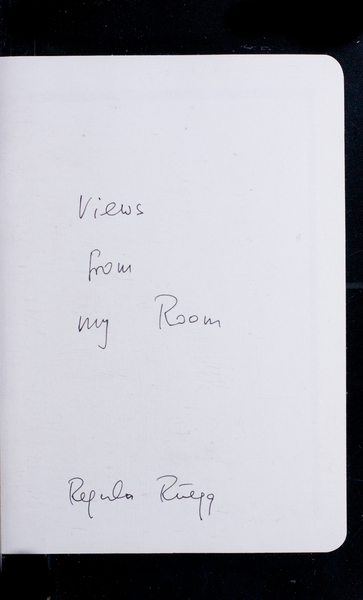 Views
from
my Room
Regula Rüegg